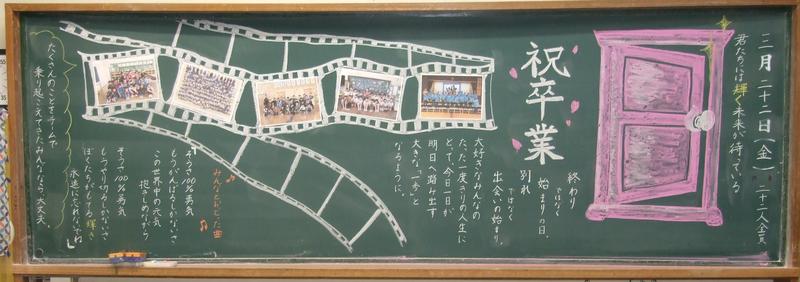 三月二十二日(金) 二十二人全員
君たちには輝く未来が待っている
祝卒業
終わり
ではなく
始まりの日。
別れ
ではなく
出会いの始まり。
大好きなみんなの
たった一度きりの人生に
とって、今日一日が
明日へ踏み出す
大きな「一歩」と
なるように。
みんなとおどった曲
「そうさ100%勇気
もうがんばるしかないさ
この世界中の元気
抱きしめながら
そうさ100%勇気
もうやり切るしかないさ
ぼくたちがもてる輝き
永遠に忘れないでね」
たくさんのことをチームで
乗り越えてきたみんななら、大丈夫。